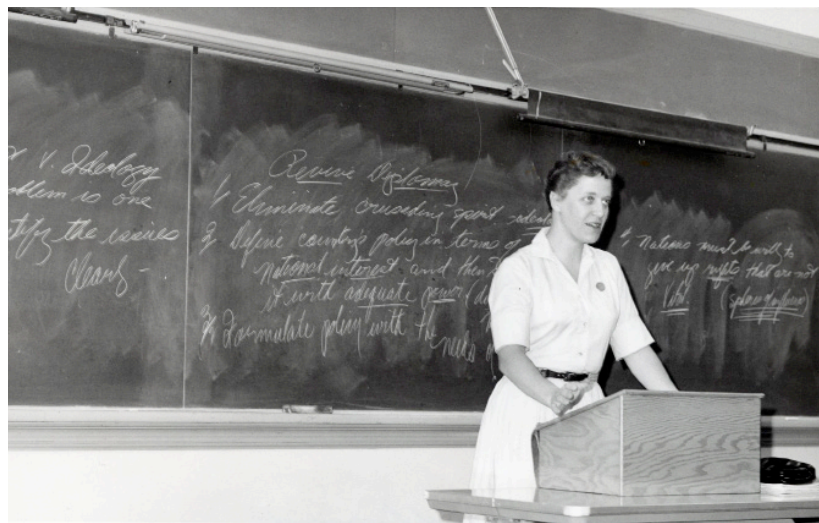 v. Ideology
oblem is one
tify the issues
clearly -
Revive Diplomacy
1. Eliminate crusading spirit
2. Define country's policy in terms of
national interest and then
it with adequate power (
3. Formulate policy with the needs
4. Nations must be willing to
give up that are not
vital. (spheres of influence)